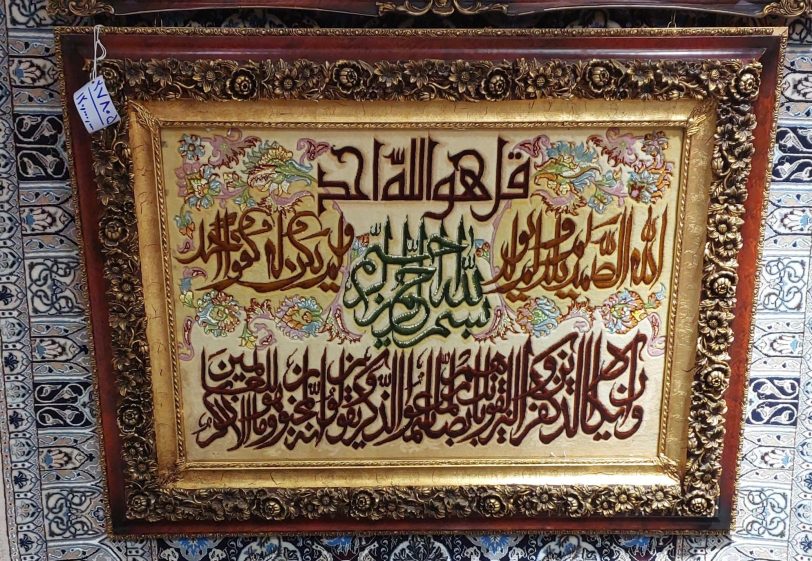 قل هو الله احد
الله الصمد لم يلد ولم يولد
بسم الله الرحمن الرحيم
ولم يكن له كفوا احد
وان يكاد الذين كفروا ليزلقونك بابصارهم لما سمعوا الذكر ويقولون انه لمجنون وما هو الا ذكر للعالمين